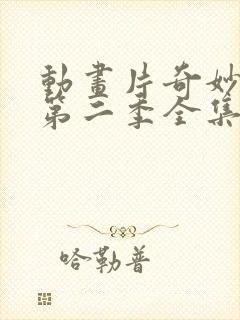 動畫片奇妙
第二季全集
哈勒普